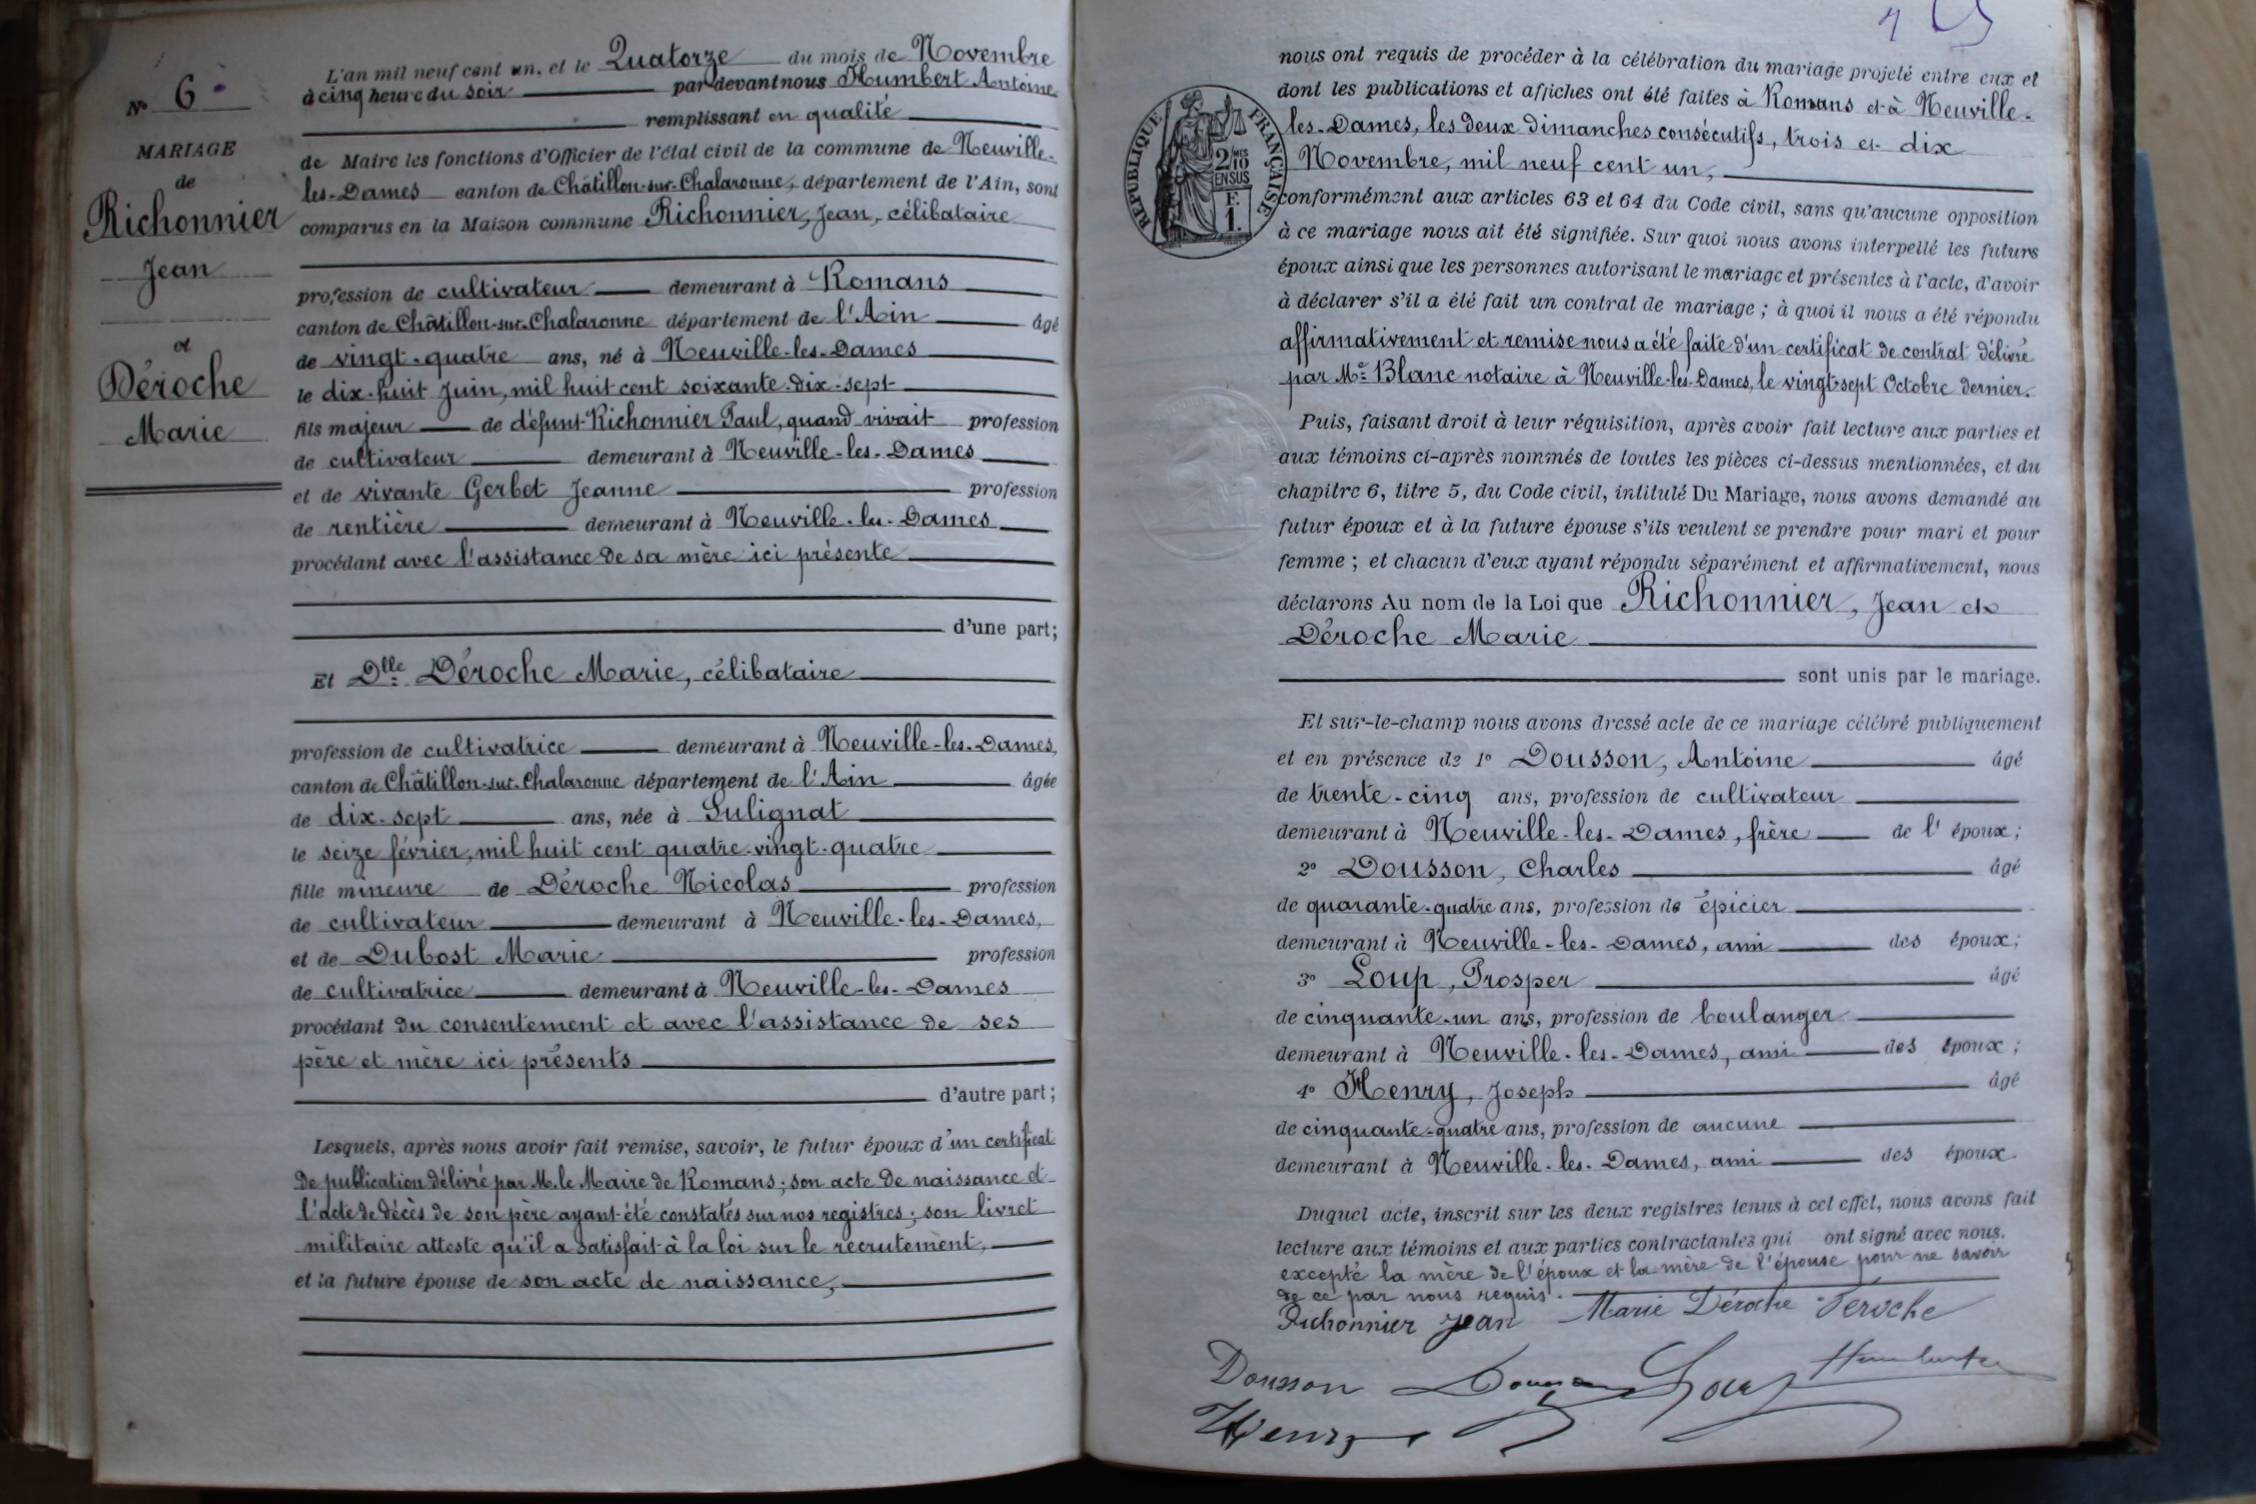 N° 6
MARIAGE
de
Richonnier
Jean
et
Déroche
Marie
L'an mil neuf cent un, et le Quatorze du mois de Novembre
à cinq heure du soir par-devant nous Humbert Antoine
remplissant en qualité
de Maire les fonctions d'Officier de l'état civil de la commune de Neuville-
les-Dames canton de Châtillon-sur-Chalaronne, département de l'Ain, sont
comparus en la Maison commune Richonnier, Jean, célibataire
profession de cultivateur demeurant à Romans
canton de Châtillon-sur-Chalaronne département de l'Ain âgé
de vingt-quatre ans, né à Neuville-les-Dames
le dix-huit Juin, mil huit cent soixante-dix-sept
fils majeur de défunt Richonnier Paul, quand vivait profession
de cultivateur demeurant à Neuville-les-Dames
et de vivante Gerbet Jeanne profession
de rentière demeurant à Neuville-les-Dames
procédant avec l'assistance de sa mère ici présente
d'une part;
Et Dlle Déroche Marie, célibataire
profession de cultivatrice demeurant à Neuville-les-Dames,
canton de Châtillon-sur-Chalaronne département de l'Ain âgée
de dix-sept ans, née à Sulignat
le seize février, mil huit cent quatre-vingt-quatre
fille mineure de Déroche Nicolas profession
de cultivateur demeurant à Neuville-les-Dames,
et de Dubost Marie profession
de cultivatrice demeurant à Neuville-les-Dames
procédant du consentement et avec l'assistance de ses
père et mère ici présents
d'autre part;
Lesquels, après nous avoir fait remise, savoir, le futur époux d'un certificat
de publication délivré par M. le Maire de Romans; son acte de naissance et
l'acte de décès de son père ayant été constatés sur nos registres; son livret
militaire atteste qu'il a satisfait à la loi sur le recrutement,
et la future épouse de son acte de naissance,
nous ont requis de procéder à la célébration du mariage projeté entre eux et
dont les publications et affiches ont été faites à Romans et à Neuville-
les-Dames, les deux dimanches consécutifs, trois et dix
Novembre, mil neuf cent un,
RÉPUBLIQUE FRANÇAISE
2/10 MES
EN SUS
F.
1.
conformément aux articles 63 et 64 du Code civil, sans qu'aucune opposition
à ce mariage nous ait été signifiée. Sur quoi nous avons interpellé les futurs
époux ainsi que les personnes autorisant le mariage et présentes à l'acte, d'avoir
à déclarer s'il a été fait un contrat de mariage; à quoi il nous a été répondu
affirmativement et remise nous a été faite d'un certificat de contrat délivré
par Me Blanc notaire à Neuville-les-Dames, le vingt-sept Octobre dernier.
Puis, faisant droit à leur réquisition, après avoir fait lecture aux parties et
aux témoins ci-après nommés de toutes les pièces ci-dessus mentionnées, et du
chapitre 6, titre 5, du Code civil, intitulé Du Mariage, nous avons demandé au
futur époux et à la future épouse s'ils veulent se prendre pour mari et pour
femme; et chacun d'eux ayant répondu séparément et affirmativement, nous
déclarons Au nom de la Loi que Richonnier, Jean et
Déroche Marie
sont unis par le mariage.
Et sur-le-champ nous avons dressé acte de ce mariage célébré publiquement
et en présence de 1° Dousson, Antoine âgé
de trente-cinq ans, profession de cultivateur
demeurant à Neuville-les-Dames, frère de l'époux;
2° Dousson, Charles âgé
de quarante-quatre ans, profession de épicier
demeurant à Neuville-les-Dames, ami des époux;
3° Loup, Prosper âgé
de cinquante-un ans, profession de boulanger
demeurant à Neuville-les-Dames, ami des époux;
4° Henry, Joseph âgé
de cinquante-quatre ans, profession de aucune
demeurant à Neuville-les-Dames, ami des époux.
Duquel acte, inscrit sur les deux registres tenus à cet effet, nous avons fait
lecture aux témoins et aux parties contractantes qui ont signé avec nous.
excepté la mère de l'époux et la mère de l'épouse pour ne savoir
de ce par nous requis.
Richonnier Jean Marie Déroche Deroche
Dousson Dousson Loup Humbert
Henry